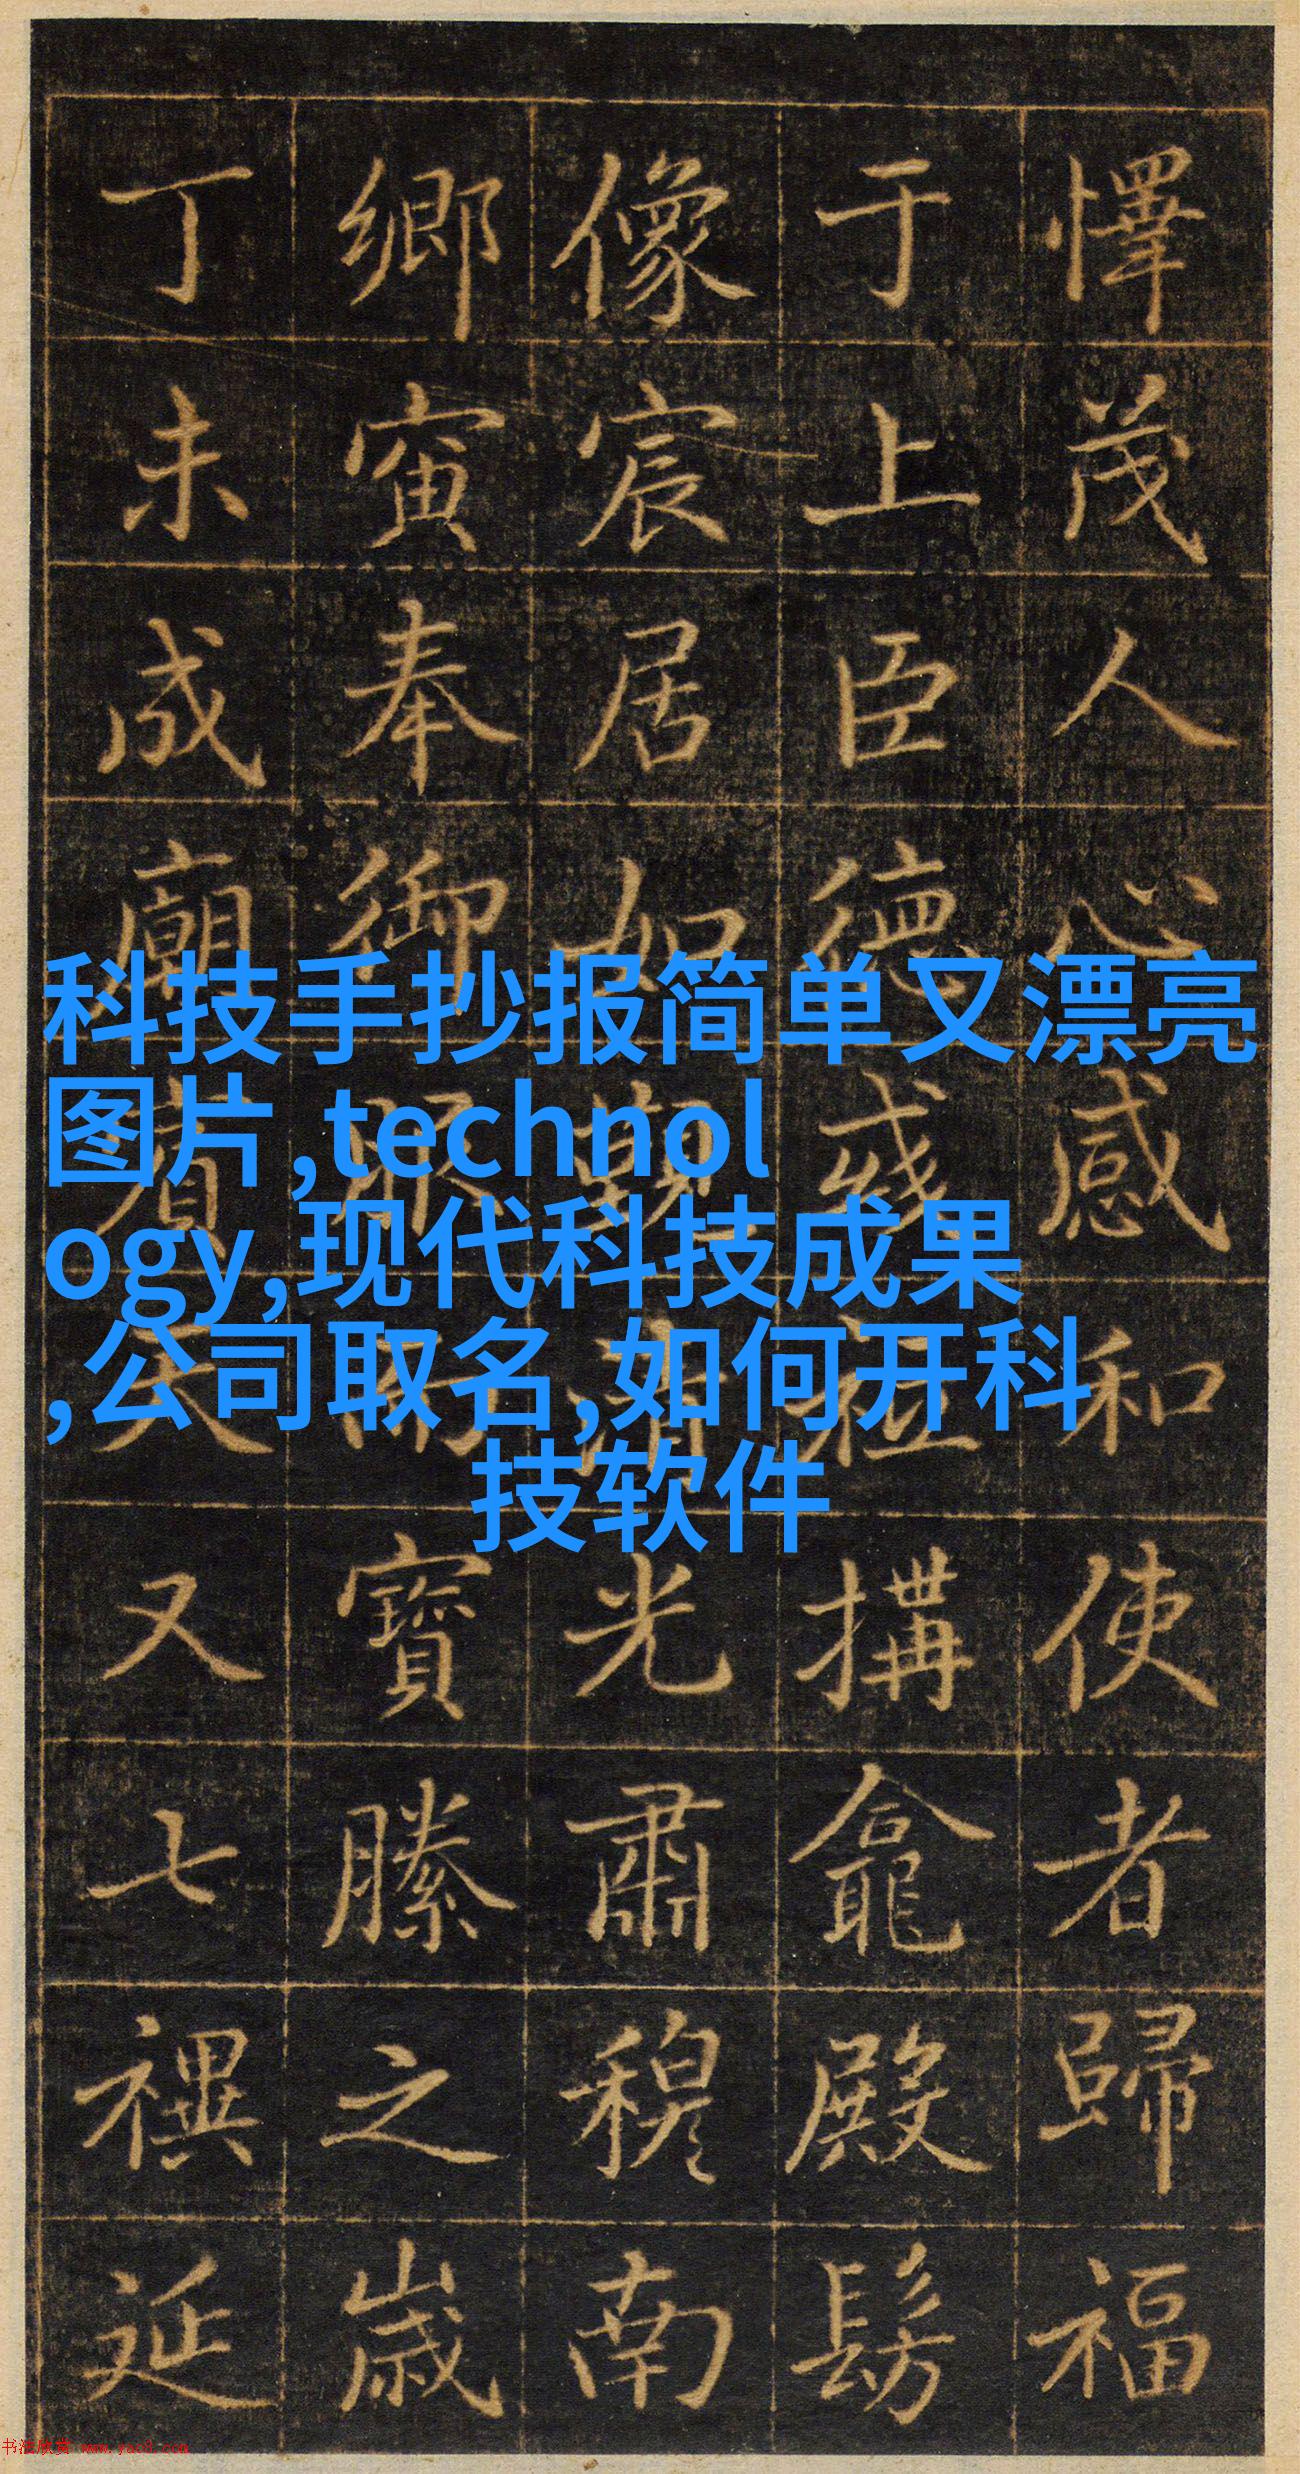 懌茂人心感和使者歸福
于上臣德搆龕殿髣
像宸居如光肅穆南
鄉寅奉御寶縢之歲
丁未成廟又七禩延
科技手抄报简单又漂亮
图片,technol
ogy,现代科技成果
,公司取名,如何开科
技软件
书法欣赏 www.yac8.com